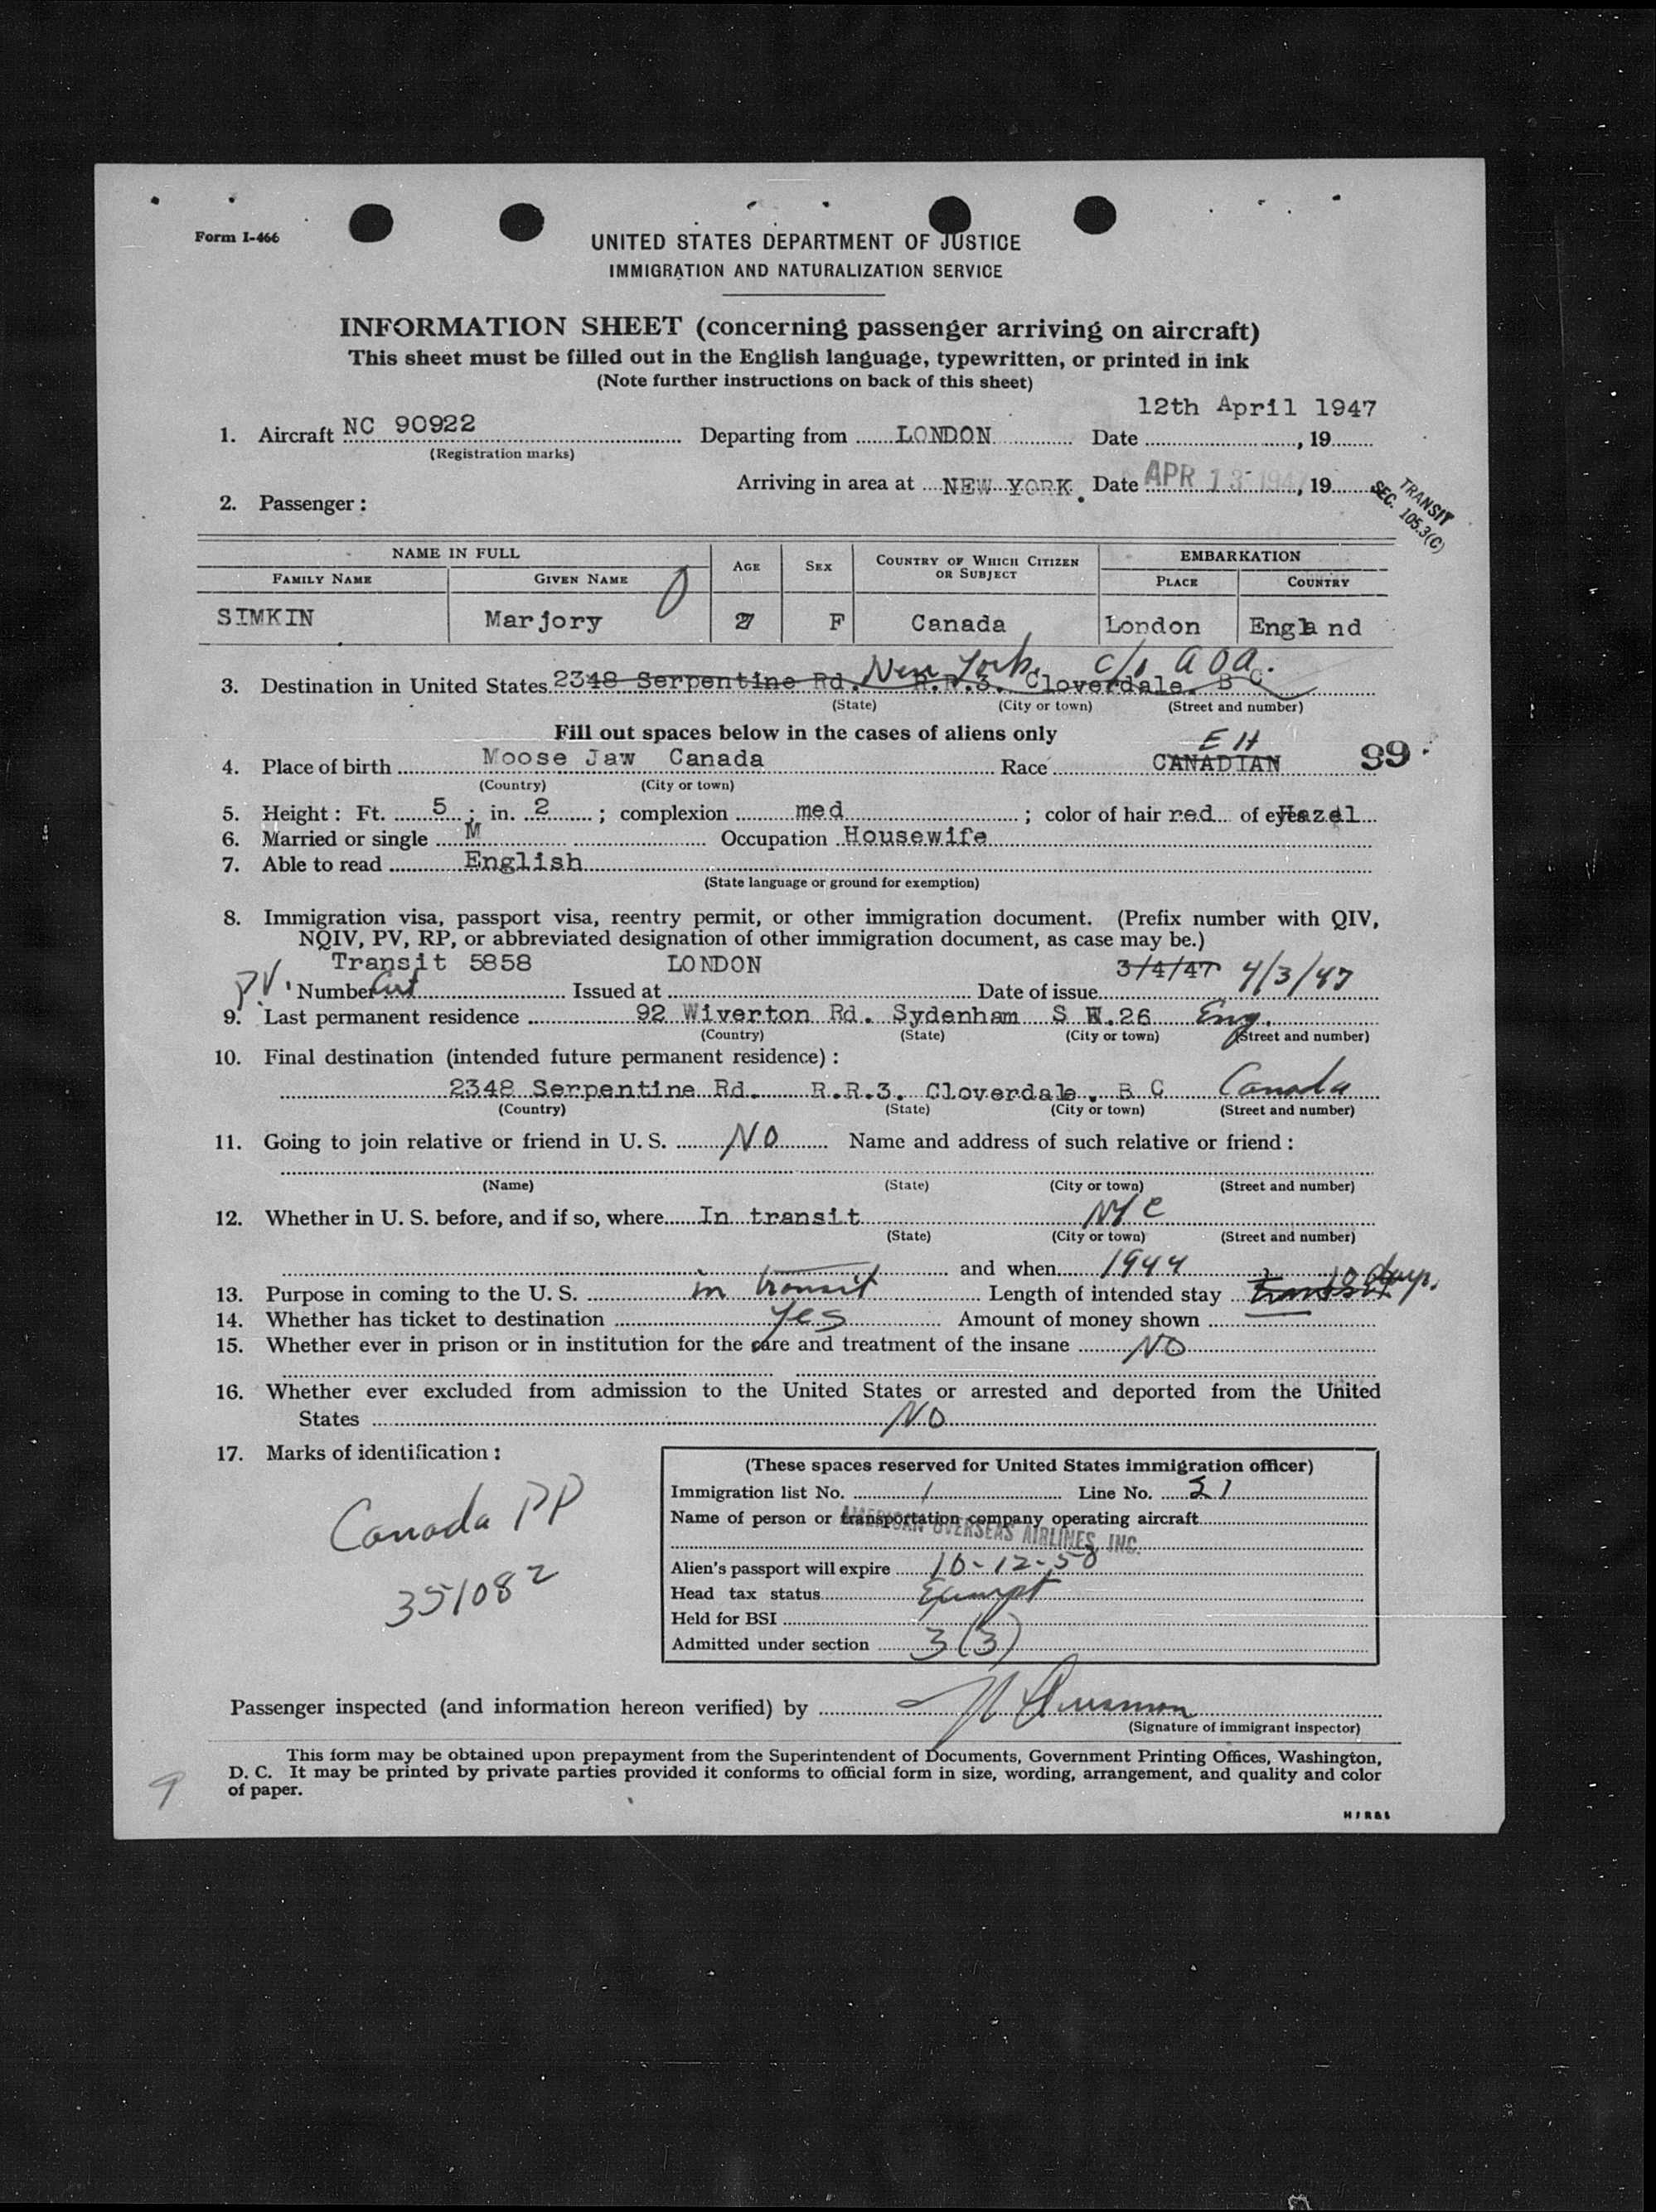 Form I-466
UNITED STATES DEPARTMENT OF JUSTICE
IMMIGRATION AND NATURALIZATION SERVICE
INFORMATION SHEET (concerning passenger arriving on aircraft)
This sheet must be filled out in the English language, typewritten, or printed in ink
(Note further instructions on back of this sheet)
12th April 1947
1. Aircraft NC 90922 Departing from LONDON Date , 19
(Registration marks)
Arriving in area at NEW YORK. Date APR 13 1947, 19
TRANSIT
SEC. 105.3(C)
2. Passenger:
NAME IN FULL AGE SEX COUNTRY OF WHICH CITIZEN OR SUBJECT EMBARKATION
FAMILY NAME GIVEN NAME PLACE COUNTRY
SIMKIN Marjory 27 F Canada London England
New York c/o AOA.
3. Destination in United States 2348 Serpentine Rd. R.R.3. Cloverdale. B C
(State) (City or town) (Street and number)
Fill out spaces below in the cases of aliens only
E H
4. Place of birth Moose Jaw Canada Race CANADIAN 99
(Country) (City or town)
5. Height: Ft. 5 ; in. 2 ; complexion med ; color of hair red of eyes Hazel
6. Married or single M Occupation Housewife
7. Able to read English
(State language or ground for exemption)
8. Immigration visa, passport visa, reentry permit, or other immigration document. (Prefix number with QIV,
NQIV, PV, RP, or abbreviated designation of other immigration document, as case may be.)
Transit 5858 LONDON 3/4/47 4/3/47
PV. Number Cert Issued at Date of issue
9. Last permanent residence 92 Wiverton Rd. Sydenham S E.26 Eng.
(Country) (State) (City or town) (Street and number)
10. Final destination (intended future permanent residence):
2348 Serpentine Rd. R.R.3. Cloverdale. B C Canada
(Country) (State) (City or town) (Street and number)
11. Going to join relative or friend in U. S. NO Name and address of such relative or friend:
(Name) (State) (City or town) (Street and number)
12. Whether in U. S. before, and if so, where In transit NYC
(State) (City or town) (Street and number)
and when 1944
13. Purpose in coming to the U. S. in transit Length of intended stay transit 10 days.
14. Whether has ticket to destination Yes Amount of money shown
15. Whether ever in prison or in institution for the care and treatment of the insane NO
16. Whether ever excluded from admission to the United States or arrested and deported from the United
States NO
17. Marks of identification:
Canada PP
351082
(These spaces reserved for United States immigration officer)
Immigration list No. 1 Line No. 21
Name of person or transportation company operating aircraft
AMERICAN OVERSEAS AIRLINES, INC.
Alien's passport will expire 10-12-50
Head tax status Exempt
Held for BSI
Admitted under section 3(3)
Passenger inspected (and information hereon verified) by
(Signature of immigrant inspector)
This form may be obtained upon prepayment from the Superintendent of Documents, Government Printing Offices, Washington,
D. C. It may be printed by private parties provided it conforms to official form in size, wording, arrangement, and quality and color
of paper.
9